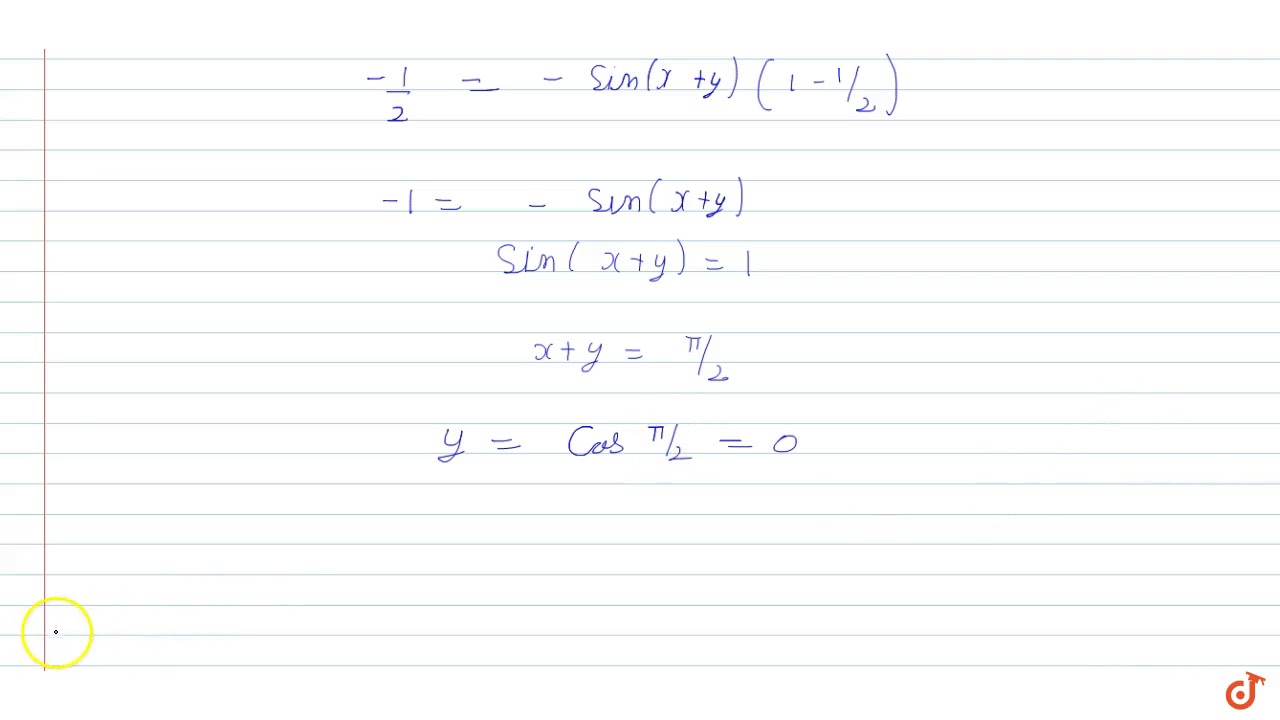 -1/2 = - Sin(x+y) (1 - 1/2)
-1 = - Sin(x+y)
Sin(x+y) = 1
x+y = π/2
y = Cos π/2 = 0